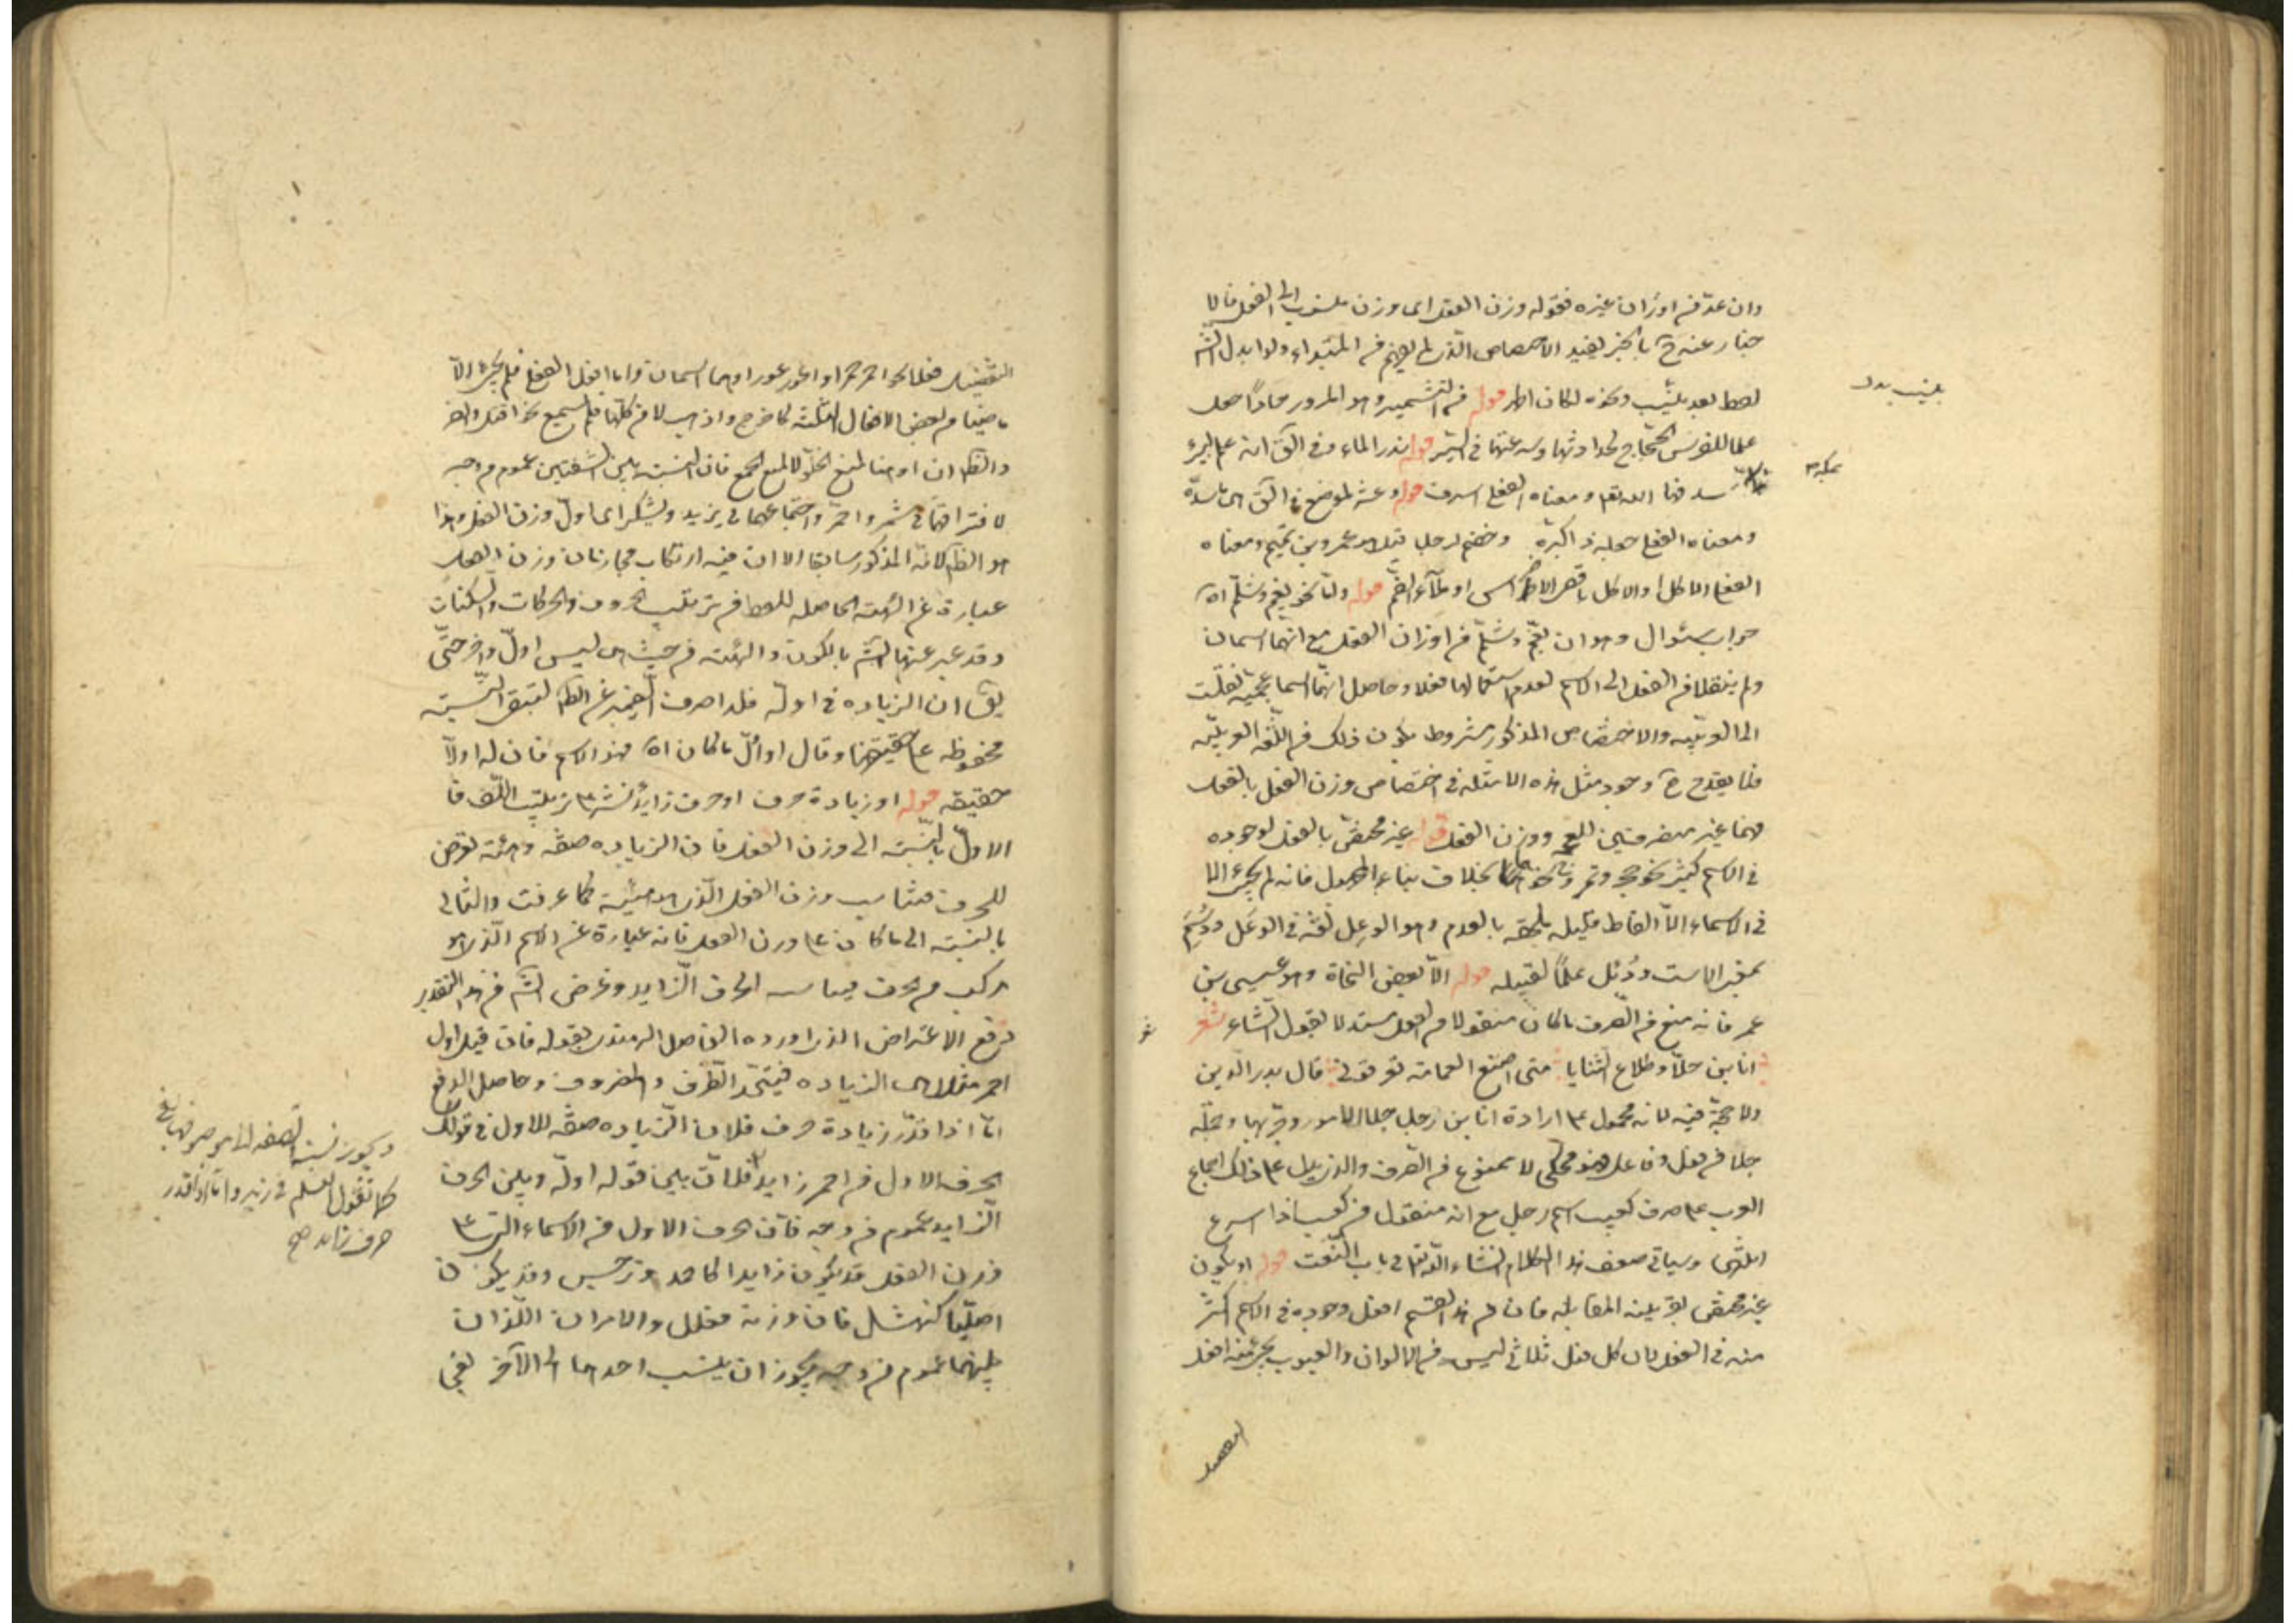 وان عدّ من اوزان غيره فقوله وزن الفعل اى وزن ينسب الى الفعل فالا
خبار عنه ح بالخبر يفيد الاختصاص الذى لم يفهم من المبتداء ولو ابدل الش
لفظ بعد بنسب ونحوه لكان اظهر قوله من التشمير وهو المرور جادا جعل
علما للفرس الحجاج لحدا وثها وسرعتها فى السير قوله بذر الماء وفى الق انه علم لبئر
بمكة
سقاها الله تعالى ومعناه الفعل اسرف قوله وعثر لموضع فى الق اى ماسدة
ومعناه الفعل جعله ذا كبرة وخضم لرجل قيل هو عمرو بن تميم ومعناه
الفعل الاكل او الاكل باقصى الاضراس او ملأ الفم قوله وامّا نحو بقّم وشلّم اه
جواب سئوال وهو ان بقّم وشلّم من اوزان الفعل مع انهما اسمان
ولم ينقلا من الفعل الى الاسم لعدم استعمالهما فعلا وحاصل انهما اسما عجمية نقلت
الى العربيّه والاختصاص المذكور مشروط بكون ذلك فى اللّغة العربيّه
فلا يقدح ح وجود مثل هذه الامثله فى اختصاص وزن الفعل بالفعل
فهما غير منصرفين للع ووزن الفعل قوله غير مختصّ بالفعل لوجوده
فى الاسم كثير نحو حجر وتمر ونحوهما بخلاف بناء المجهول فانه لم يجئ الا
فى الاسماء الّا الفاظ قليله ملحقه بالعدم وهو الوعل لغة فى الوعل ودُئِم
بمعنى الاست ودُئل علمًا لقبيله قوله الّا بعض النحاة وهو عيسى بن
عمر فانه منع من الصرف ما كان منقولا من الفعل مستدلا بقول الشاعر شعر
انا بن جلّا وطلاع الثنايا متى اضع العمامة تعرفونى قال بدر الدين
ولا حجّة فيه لانه محمول على ارادة انا بن رجل جلا الامور وجربها وجمله
جلا من فعل وفاعل فهو محكى لا ممنوع من الصرف والذى يدل على ذلك اجماع
العرب على صرف كعسب اسم رجل مع انه منقول من كعسب اذا اسرع
انتهى وسيأتى ضعف هذا الكلام انشاء الله تعالى فى باب النعت قوله او يكون
غير مختص بقرينه المقابله فان من هذا القسم افعل وجوده فى الاسم اكثر
منه فى الفعل لان كل فعل ثلاثى ليس من الالوان والعيوب يجئ منه افعل
التفضيل
بنسب بدل
التفضيل فعلا نحو احمر حمرا واعور عورا وهما اسمان واما افعل الفعل فلم يجئ الّا
ماضيا من بعض الافعال الثلثه كاخرج واذهب لا من كلّها فلم يسمع نحو اقتل وانصر
والظ ان او هنا لمنع الخلّو لا لمنع الجمع فان النسبة بين الشقين عموم من وجه
لافتراقهما فى شمر واحمر واجتماعهما فى يزيد ويشكر اى اول وزن الفعل وهذا
هو الظ لانّه المذكور سابقا الا ان فيه ارتكاب مجاز فان وزن الفعل
عبارة عن الهيئة الحاصله للفظ من ترتيب الحروف والحركات والسكنات
وقد عبر عنها الش بالكون والهيئه من حيث هى ليس اولّ واخر حتّى
يق ان الزياده فى اولّه فلذا صرف الضمير عن الظ لتبقى النّسبة
محفوظه على حقيقتها وقال او اوّل ما كان اه فهو الاسم فان له اولّا
حقيقه قوله او زيادة حرف او حرف زايد نشر على ترتيب اللّف فا
الاوّل بالنّسبة الى وزن الفعل فان الزياده صفة وهيئة تعرض
للحرف فتناسب وزن الفعل الّذى هو هيئة كما عرفت والثانى
بالنسبة الى ما كان على وزن الفعل فانه عبارة عن الاسم الّذى هو
مركب من الحرف فيناسبه الحرف الزايد وغرض الش من هذا التقدير
دفع الاعتراض الذى اورده الفاضل الهندى بقوله فان قيل اول
احمر مثلا هى الزياده فيتحد الظرف والمظروف وحاصل الدفع
انّا اذا قدّر زيادة حرف فلان الزياده صفة للاول فى قولك
الحرف الاول من احمر زايد فلان بين قوله اولّه وبين الحرف
الزايد عموم من وجه فان الحرف الاول من الاسماء التى على
وزن الفعل قد يكون زايدا كاحمد ونرجس وقد يكون
اصليّا كنهشل فان وزنه فعلل والامران اللّذان
بينهما عموم من وجه يجوز ان ينسب احدهما الى الآخر بفى
ويجوز نسبة الصفه الى موصوفها بفى
كما تقول العلم فى زيد وامّا اذا قدر
حرف زايد صح